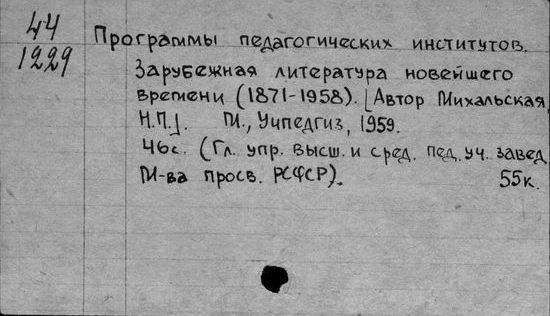 44
1229
Программы педагогических институтов.
Зарубежная литература новейшего
времени (1871-1958). [Автор Михальская
Н.П.]. М., Учпедгиз, 1959.
46с. (Гл. упр. высш. и сред. пед. уч. завед.
М-ва просв. РСФСР). 55к.